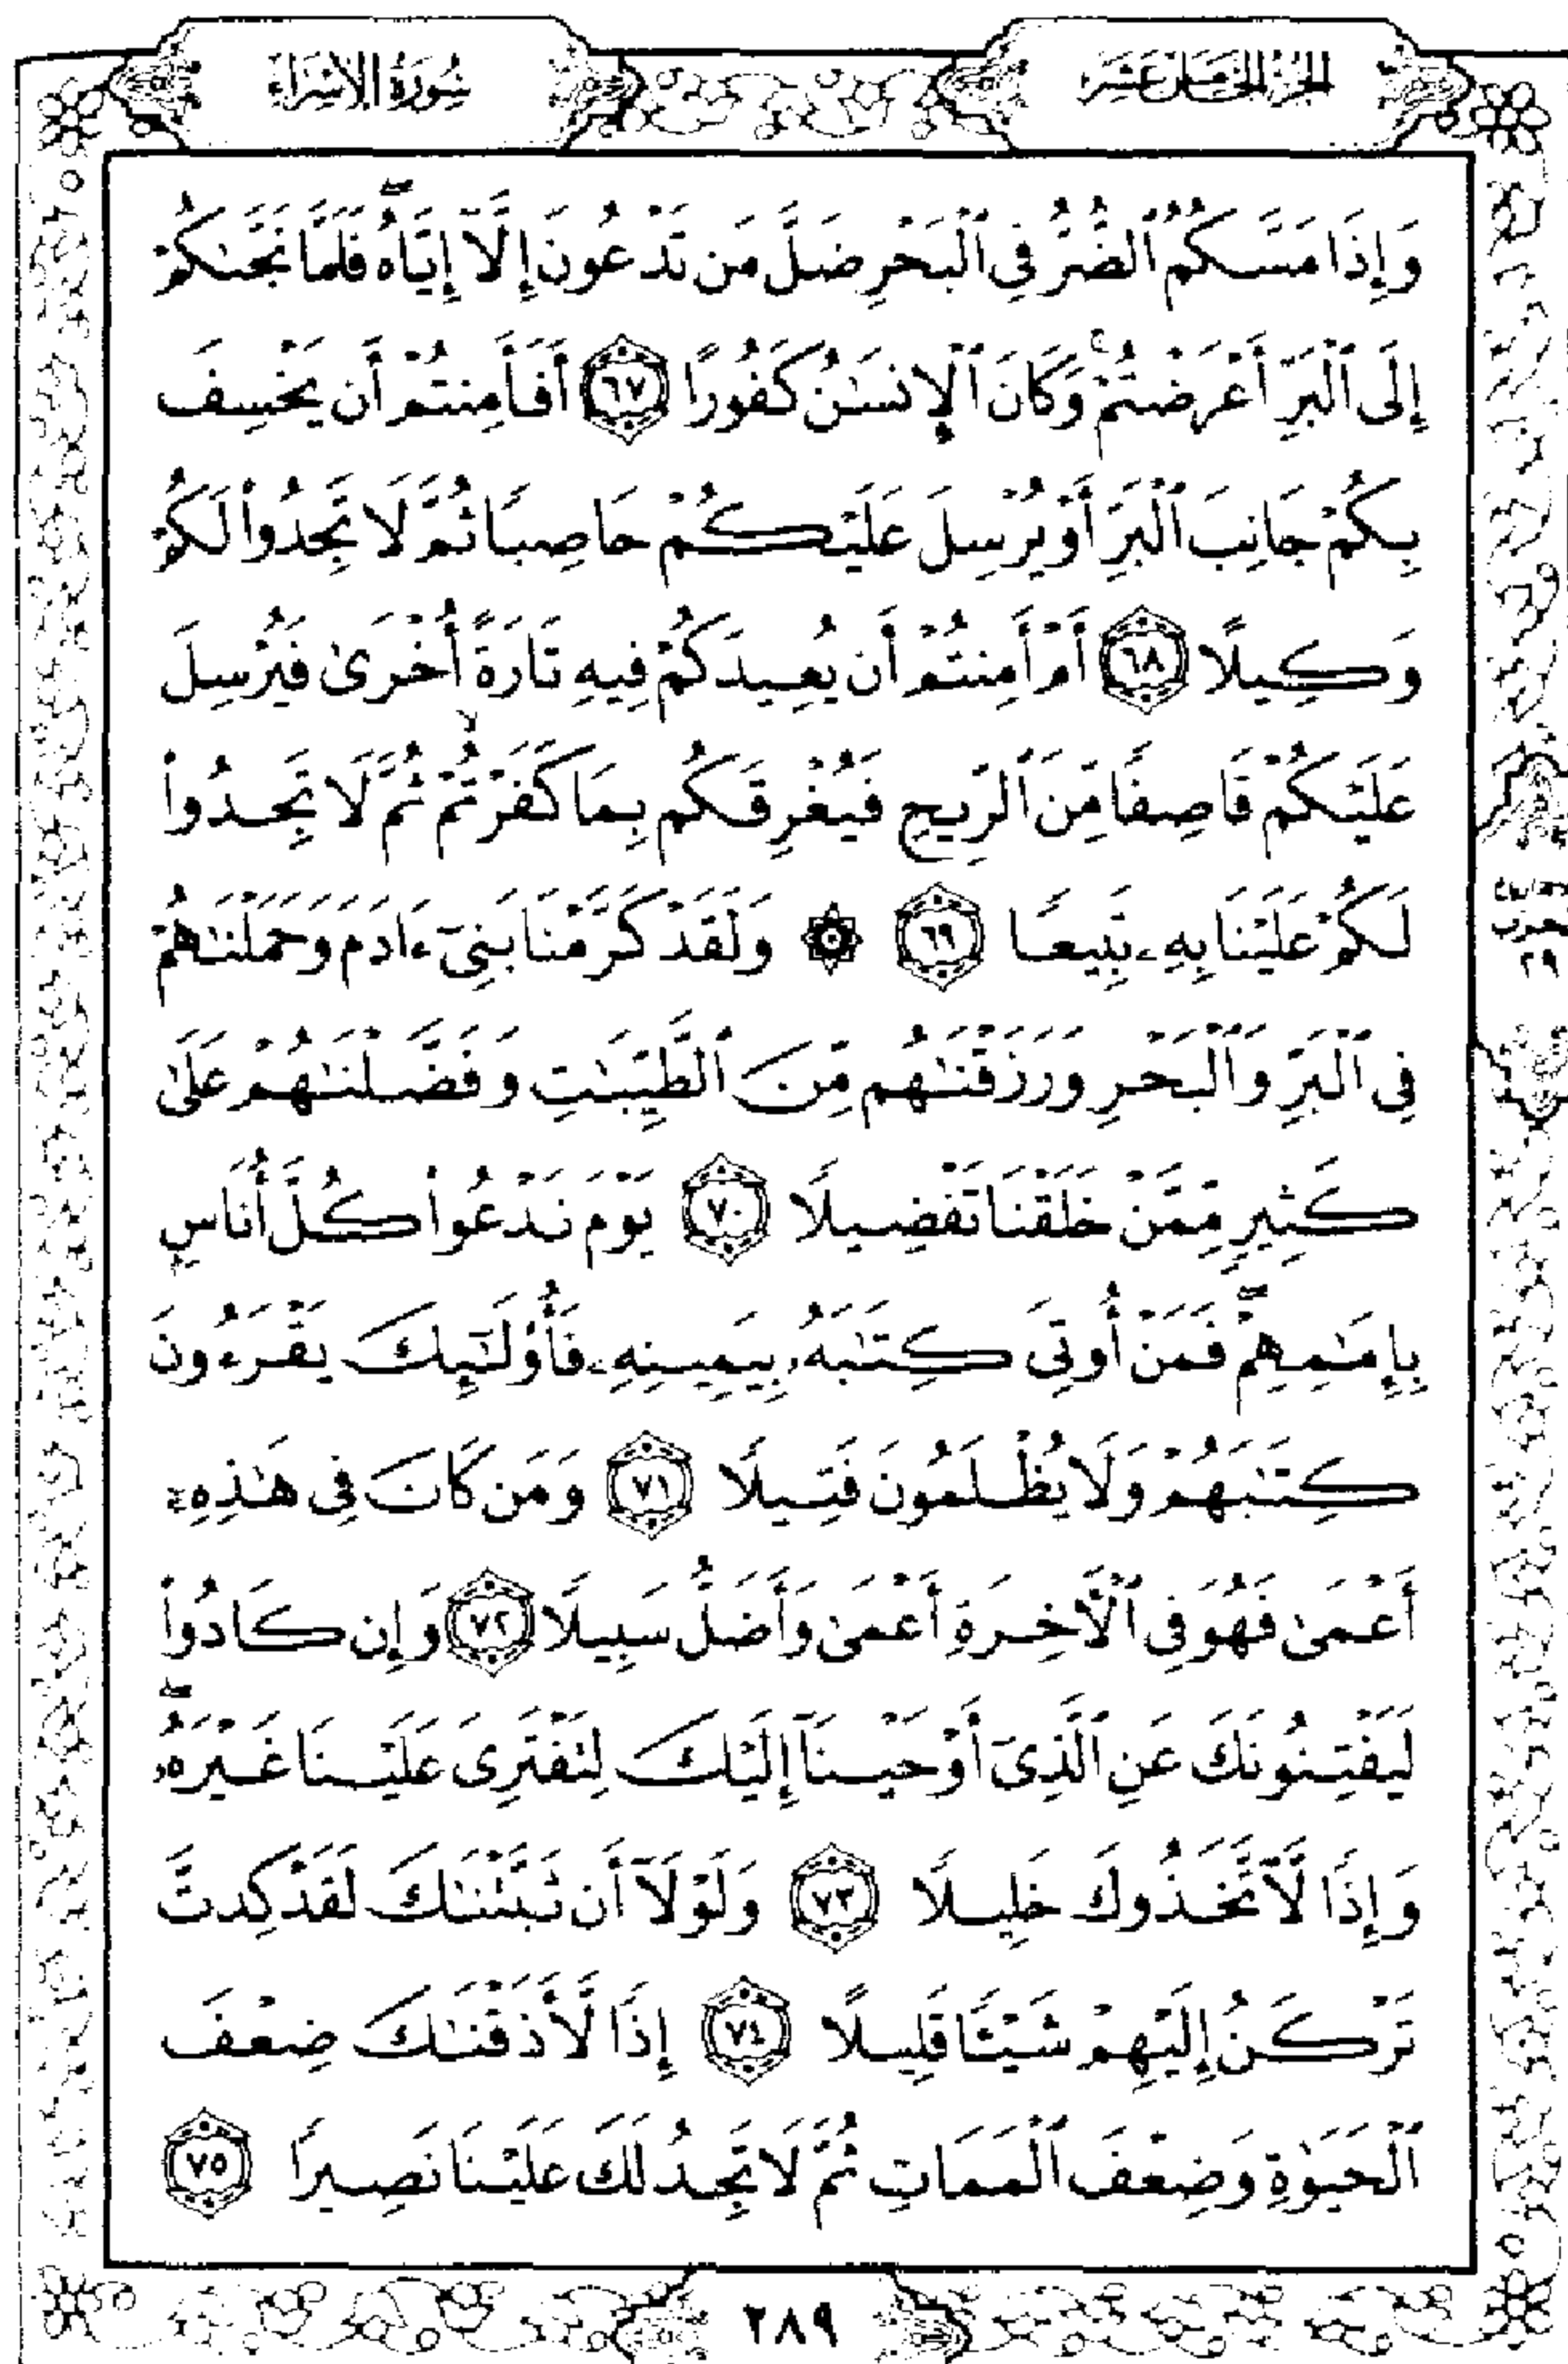 الجزء الخامس عشر
سورة الإسراء
وَإِذَا مَسَّكُمُ ٱلضُّرُّ فِى ٱلْبَحْرِ ضَلَّ مَن تَدْعُونَ إِلَّآ إِيَّاهُ ۖ فَلَمَّا نَجَّىٰكُمْ
إِلَى ٱلْبَرِّ أَعْرَضْتُمْ ۚ وَكَانَ ٱلْإِنسَـٰنُ كَفُورًا ٦٧ أَفَأَمِنتُمْ أَن يَخْسِفَ
بِكُمْ جَانِبَ ٱلْبَرِّ أَوْ يُرْسِلَ عَلَيْكُمْ حَاصِبًا ثُمَّ لَا تَجِدُوا۟ لَكُمْ
وَكِيلًا ٦٨ أَمْ أَمِنتُمْ أَن يُعِيدَكُمْ فِيهِ تَارَةً أُخْرَىٰ فَيُرْسِلَ
عَلَيْكُمْ قَاصِفًا مِّنَ ٱلرِّيحِ فَيُغْرِقَكُم بِمَا كَفَرْتُمْ ۙ ثُمَّ لَا تَجِدُوا۟
لَكُمْ عَلَيْنَا بِهِۦ تَبِيعًا ٦٩ ۞ وَلَقَدْ كَرَّمْنَا بَنِىٓ ءَادَمَ وَحَمَلْنَـٰهُمْ
فِى ٱلْبَرِّ وَٱلْبَحْرِ وَرَزَقْنَـٰهُم مِّنَ ٱلطَّيِّبَـٰتِ وَفَضَّلْنَـٰهُمْ عَلَىٰ
كَثِيرٍ مِّمَّنْ خَلَقْنَا تَفْضِيلًا ٧٠ يَوْمَ نَدْعُوا۟ كُلَّ أُنَاسٍۭ
بِإِمَـٰمِهِمْ ۖ فَمَنْ أُوتِىَ كِتَـٰبَهُۥ بِيَمِينِهِۦ فَأُو۟لَـٰٓئِكَ يَقْرَءُونَ
كِتَـٰبَهُمْ وَلَا يُظْلَمُونَ فَتِيلًا ٧١ وَمَن كَانَ فِى هَـٰذِهِۦٓ
أَعْمَىٰ فَهُوَ فِى ٱلْـَٔاخِرَةِ أَعْمَىٰ وَأَضَلُّ سَبِيلًا ٧٢ وَإِن كَادُوا۟
لَيَفْتِنُونَكَ عَنِ ٱلَّذِىٓ أَوْحَيْنَآ إِلَيْكَ لِتَفْتَرِىَ عَلَيْنَا غَيْرَهُۥ ۖ
وَإِذًا لَّٱتَّخَذُوكَ خَلِيلًا ٧٣ وَلَوْلَآ أَن ثَبَّتْنَـٰكَ لَقَدْ كِدتَّ
تَرْكَنُ إِلَيْهِمْ شَيْـًٔا قَلِيلًا ٧٤ إِذًا لَّأَذَقْنَـٰكَ ضِعْفَ
ٱلْحَيَوٰةِ وَضِعْفَ ٱلْمَمَاتِ ثُمَّ لَا تَجِدُ لَكَ عَلَيْنَا نَصِيرًا ٧٥
٢٨٩